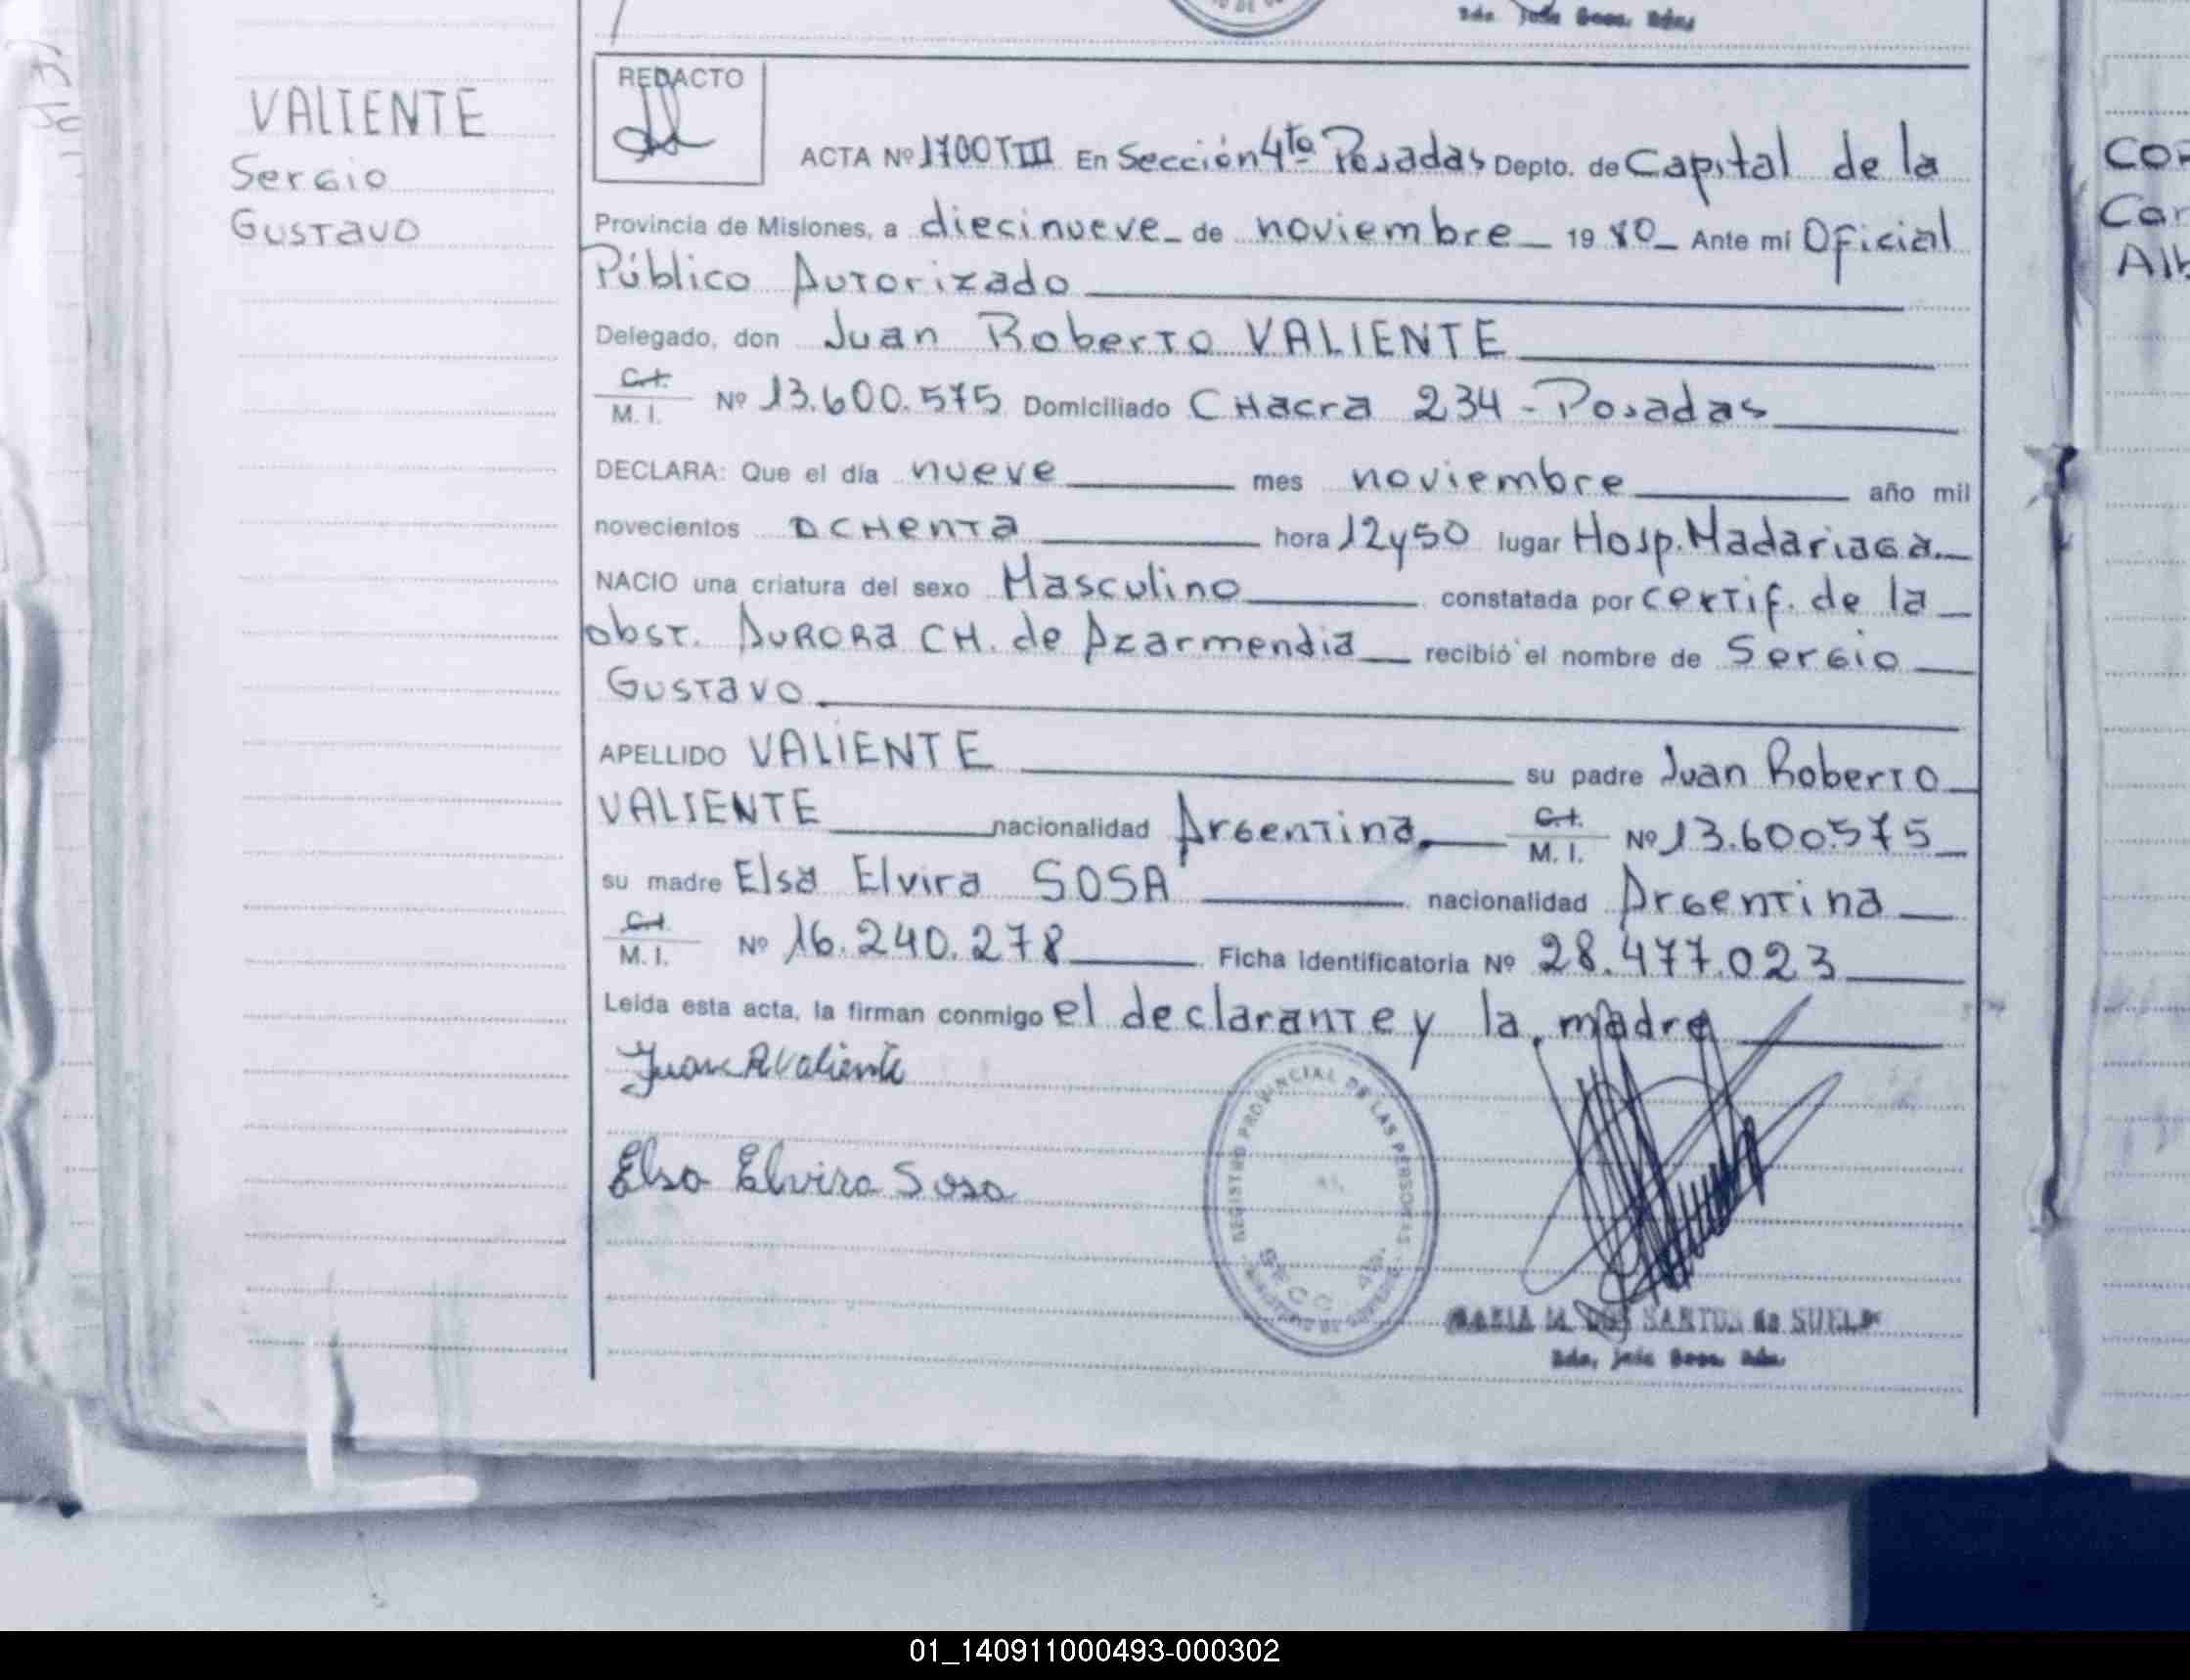 VALIENTE
Sergio
Gustavo
REDACTO
ACTA Nº 1700 T III En Sección 4ta Posadas Depto. de Capital de la
Provincia de Misiones, a diecinueve de noviembre 19 80 Ante mí Oficial
Público Autorizado
Delegado, don Juan Roberto VALIENTE
C.I.
M. I. Nº 13.600.575 Domiciliado CHacra 234 - Posadas
DECLARA: Que el día nueve mes noviembre año mil
novecientos OCHenta hora 12y50 lugar Hosp. Madariaga
NACIO una criatura del sexo Masculino constatada por certif. de la
obst. AURORA CH. de Azarmendia recibió el nombre de Sergio
Gustavo
APELLIDO VALIENTE su padre Juan Roberto
VALIENTE nacionalidad Argentina C.I.
M. I. Nº 13.600.575
su madre Elsa Elvira SOSA nacionalidad Argentina
C.I.
M. I. Nº 16.240.278 Ficha Identificatoria Nº 28.477.023
Leída esta acta, la firman conmigo el declarante y la madre
Juan R Valiente
Elsa Elvira Sosa
REGISTRO PROVINCIAL DE LAS PERSONAS
MINISTERIO DE GOBIERNO
SECC. 4ta.
MARIA M. DOS SANTOS de SUELD
COR
Car
Alb
01_140911000493-000302